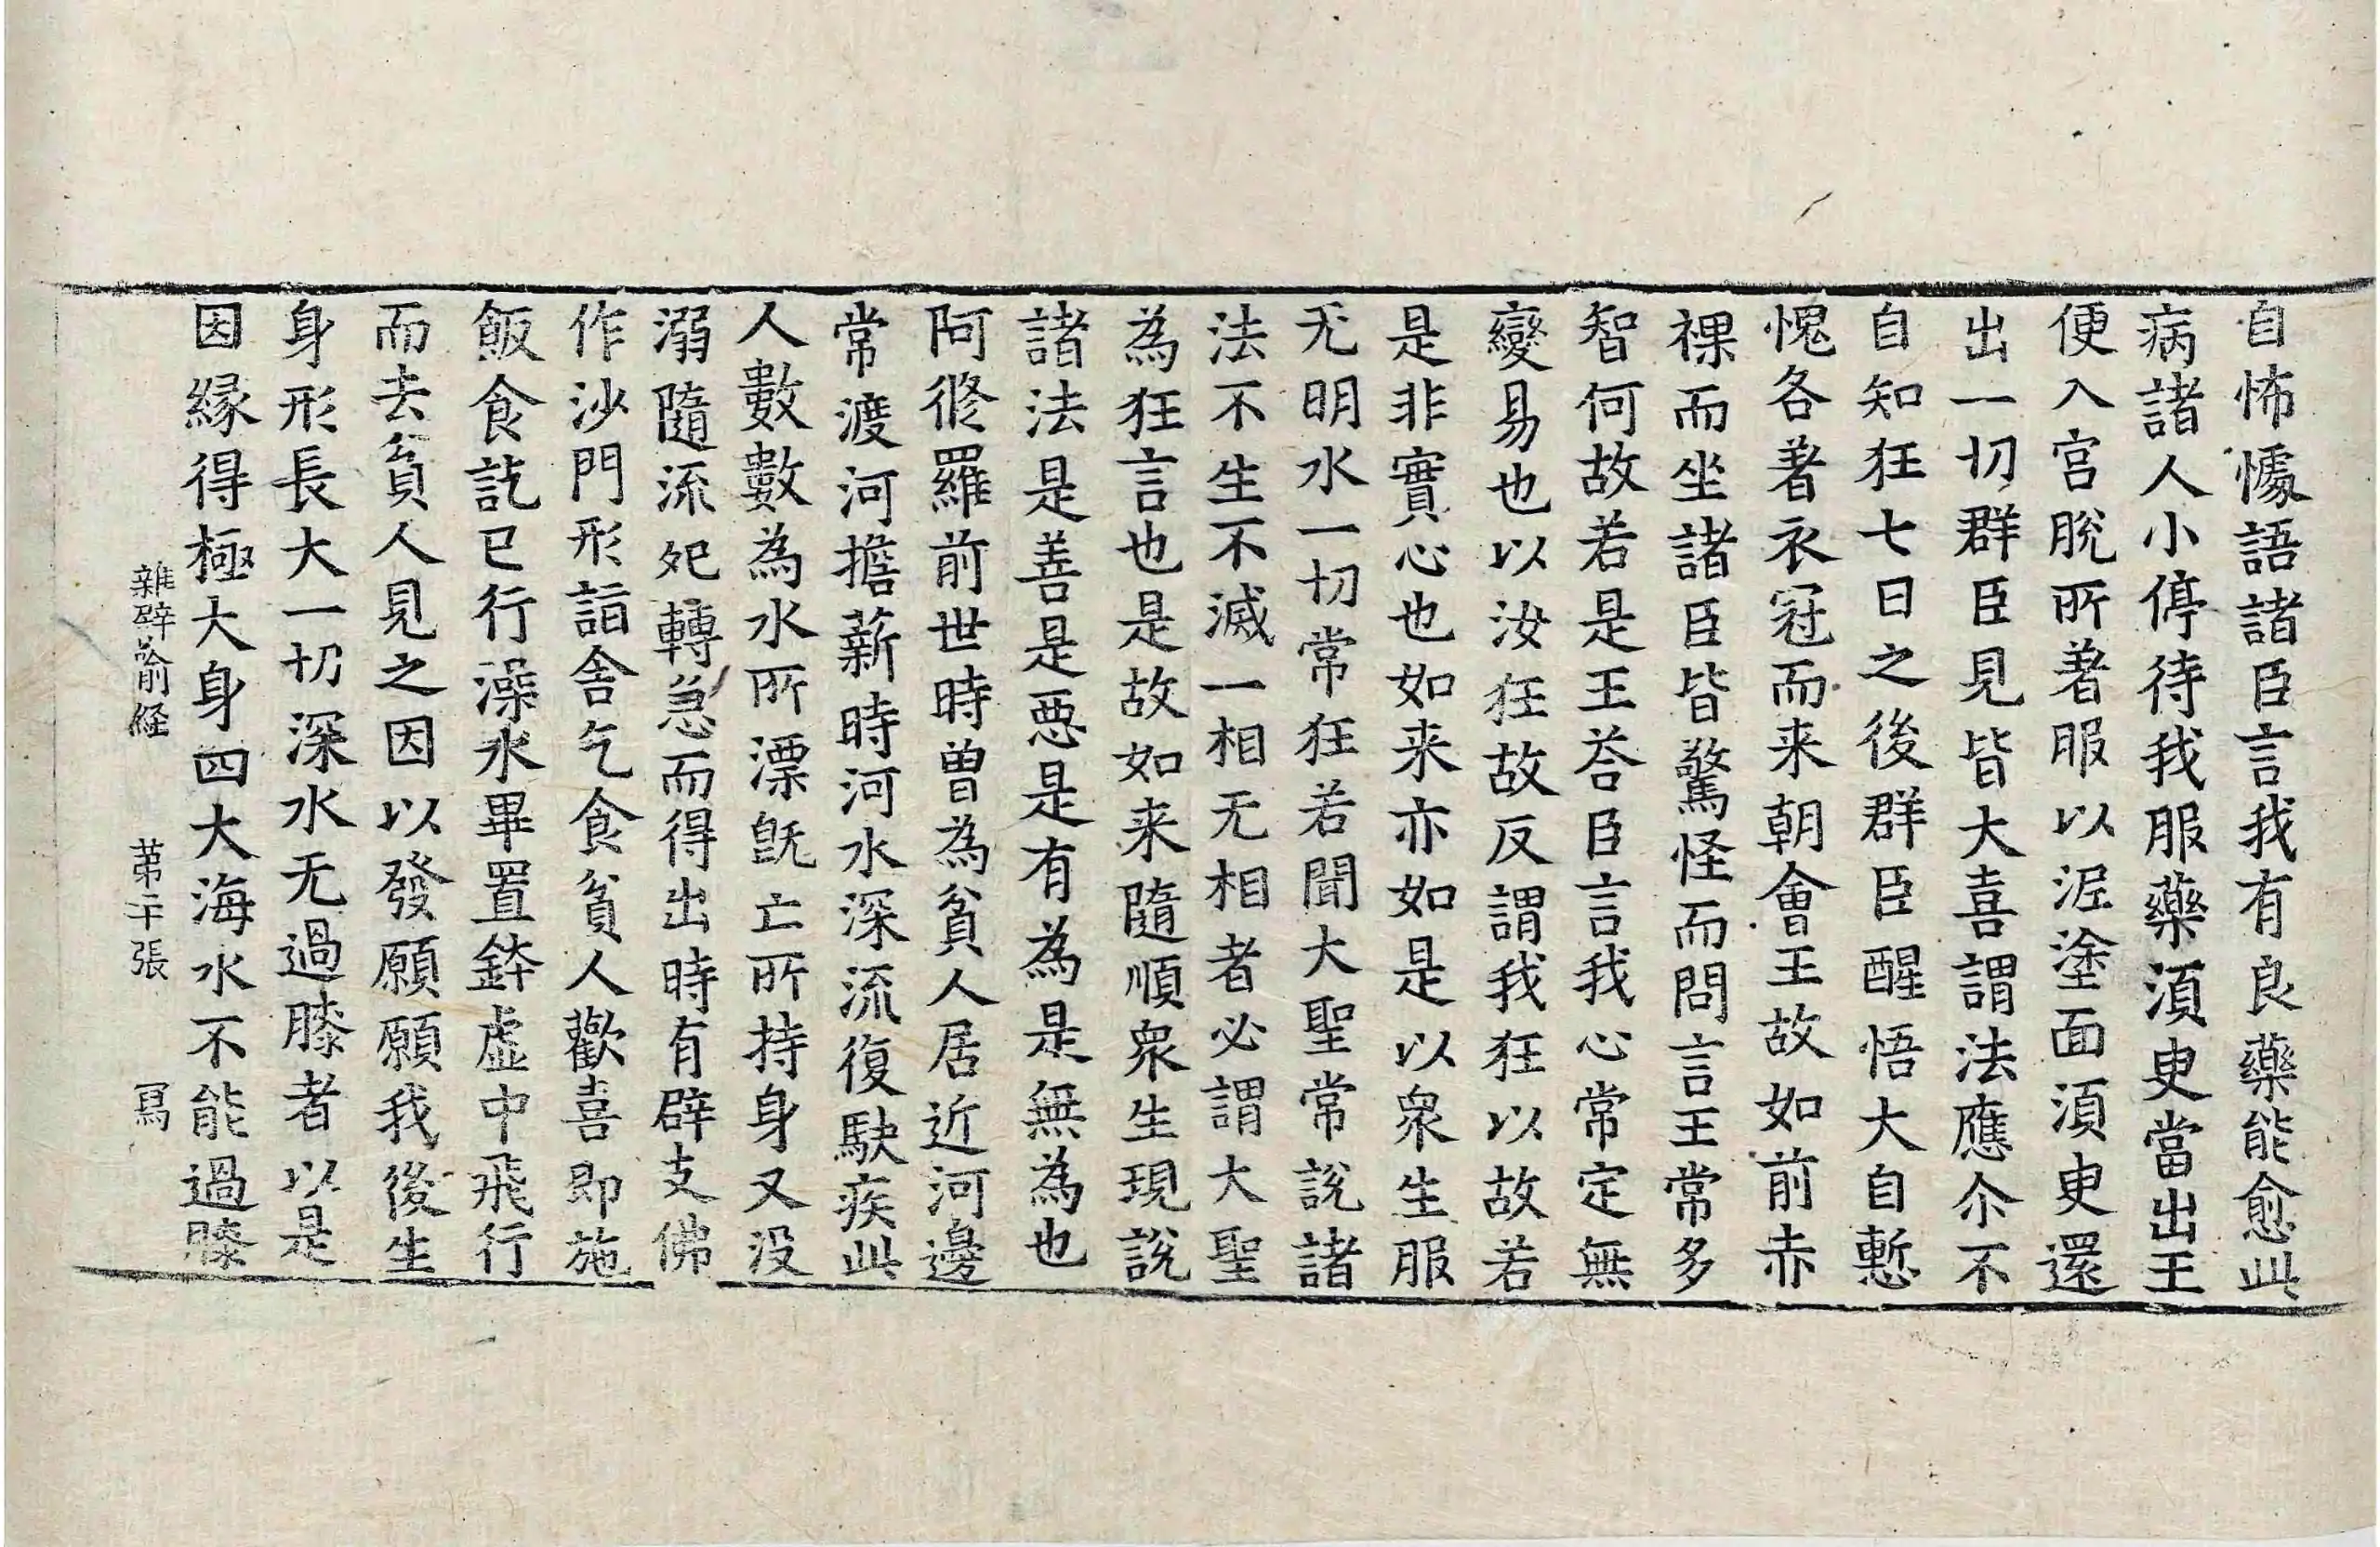 自怖懅語諸臣言我有良藥能愈此
病諸人小停待我服藥湏臾當出王
便入宮脫所著服以泥塗面湏臾還
出一切群臣見皆大喜謂法應尒不
自知狂七日之後群臣醒悟大自慙
愧各著衣冠而来朝會王故如前赤
裸而坐諸臣皆驚怪而問言王常多
智何故若是王荅臣言我心常定無
變易也以汝狂故反謂我狂以故若
是非實心也如来亦如是以衆生服
无明水一切常狂若聞大聖常說諸
法不生不滅一相无相者必謂大聖
為狂言也是故如来隨順衆生現說
諸法是善是惡是有為是無為也
阿修羅前世時曾為貧人居近河邊
常渡河擔薪時河水深流復駃疾此
人數數為水所漂旣亡所持身又没
溺隨流死轉急而得出時有辟支佛
作沙門形詣舍乞食貧人歡喜即施
飯食訖已行澡水畢置鉢虛中飛行
而去貧人見之因以發願願我後生
身形長大一切深水无過膝者以是
因緣得極大身四大海水不能過膝
雜譬喻經　第二十張　冩